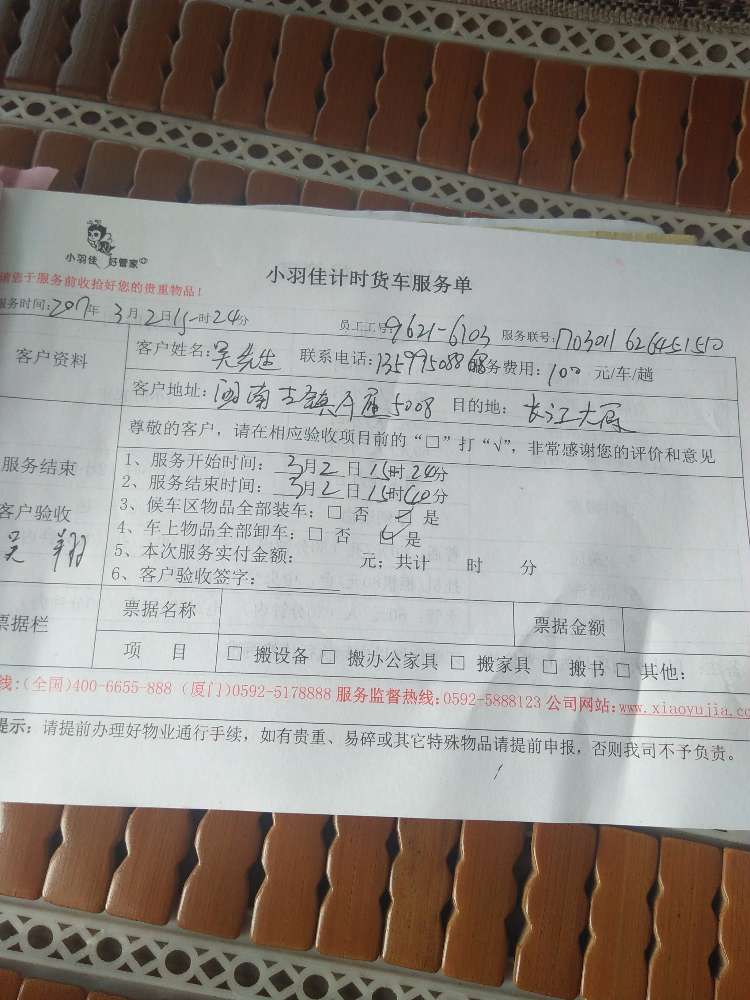 小羽佳 好管家
小羽佳计时货车服务单
请您于服务前收拾好您的贵重物品！
服务时间：2017年 3月2日15时24分 员工工号：9621-6103 服务联号：1703011626451510
客户资料 客户姓名：吴先生 联系电话：13599508868 服务费用：100 元/车/趟
客户地址：闽南古镇 5008 目的地：长江大厦
尊敬的客户，请在相应验收项目前的“□”打“√”，非常感谢您的评价和意见
服务结束
客户验收
吴翔
1、服务开始时间：3月2日15时24分
2、服务结束时间：3月2日15时40分
3、候车区物品全部装车：□ 否 ☑ 是
4、车上物品全部卸车：□ 否 ☑ 是
5、本次服务实付金额： 元；共计 时 分
6、客户验收签字：
票据栏 票据名称 票据金额
项 目 □ 搬设备 □ 搬办公家具 □ 搬家具 □ 搬书 □ 其他：
线：(全国)400-6655-888 (厦门)0592-5178888 服务监督热线：0592-5888123 公司网站：www.xiaoyujia.co
提示：请提前办理好物业通行手续，如有贵重、易碎或其它特殊物品请提前申报，否则我司不予负责。